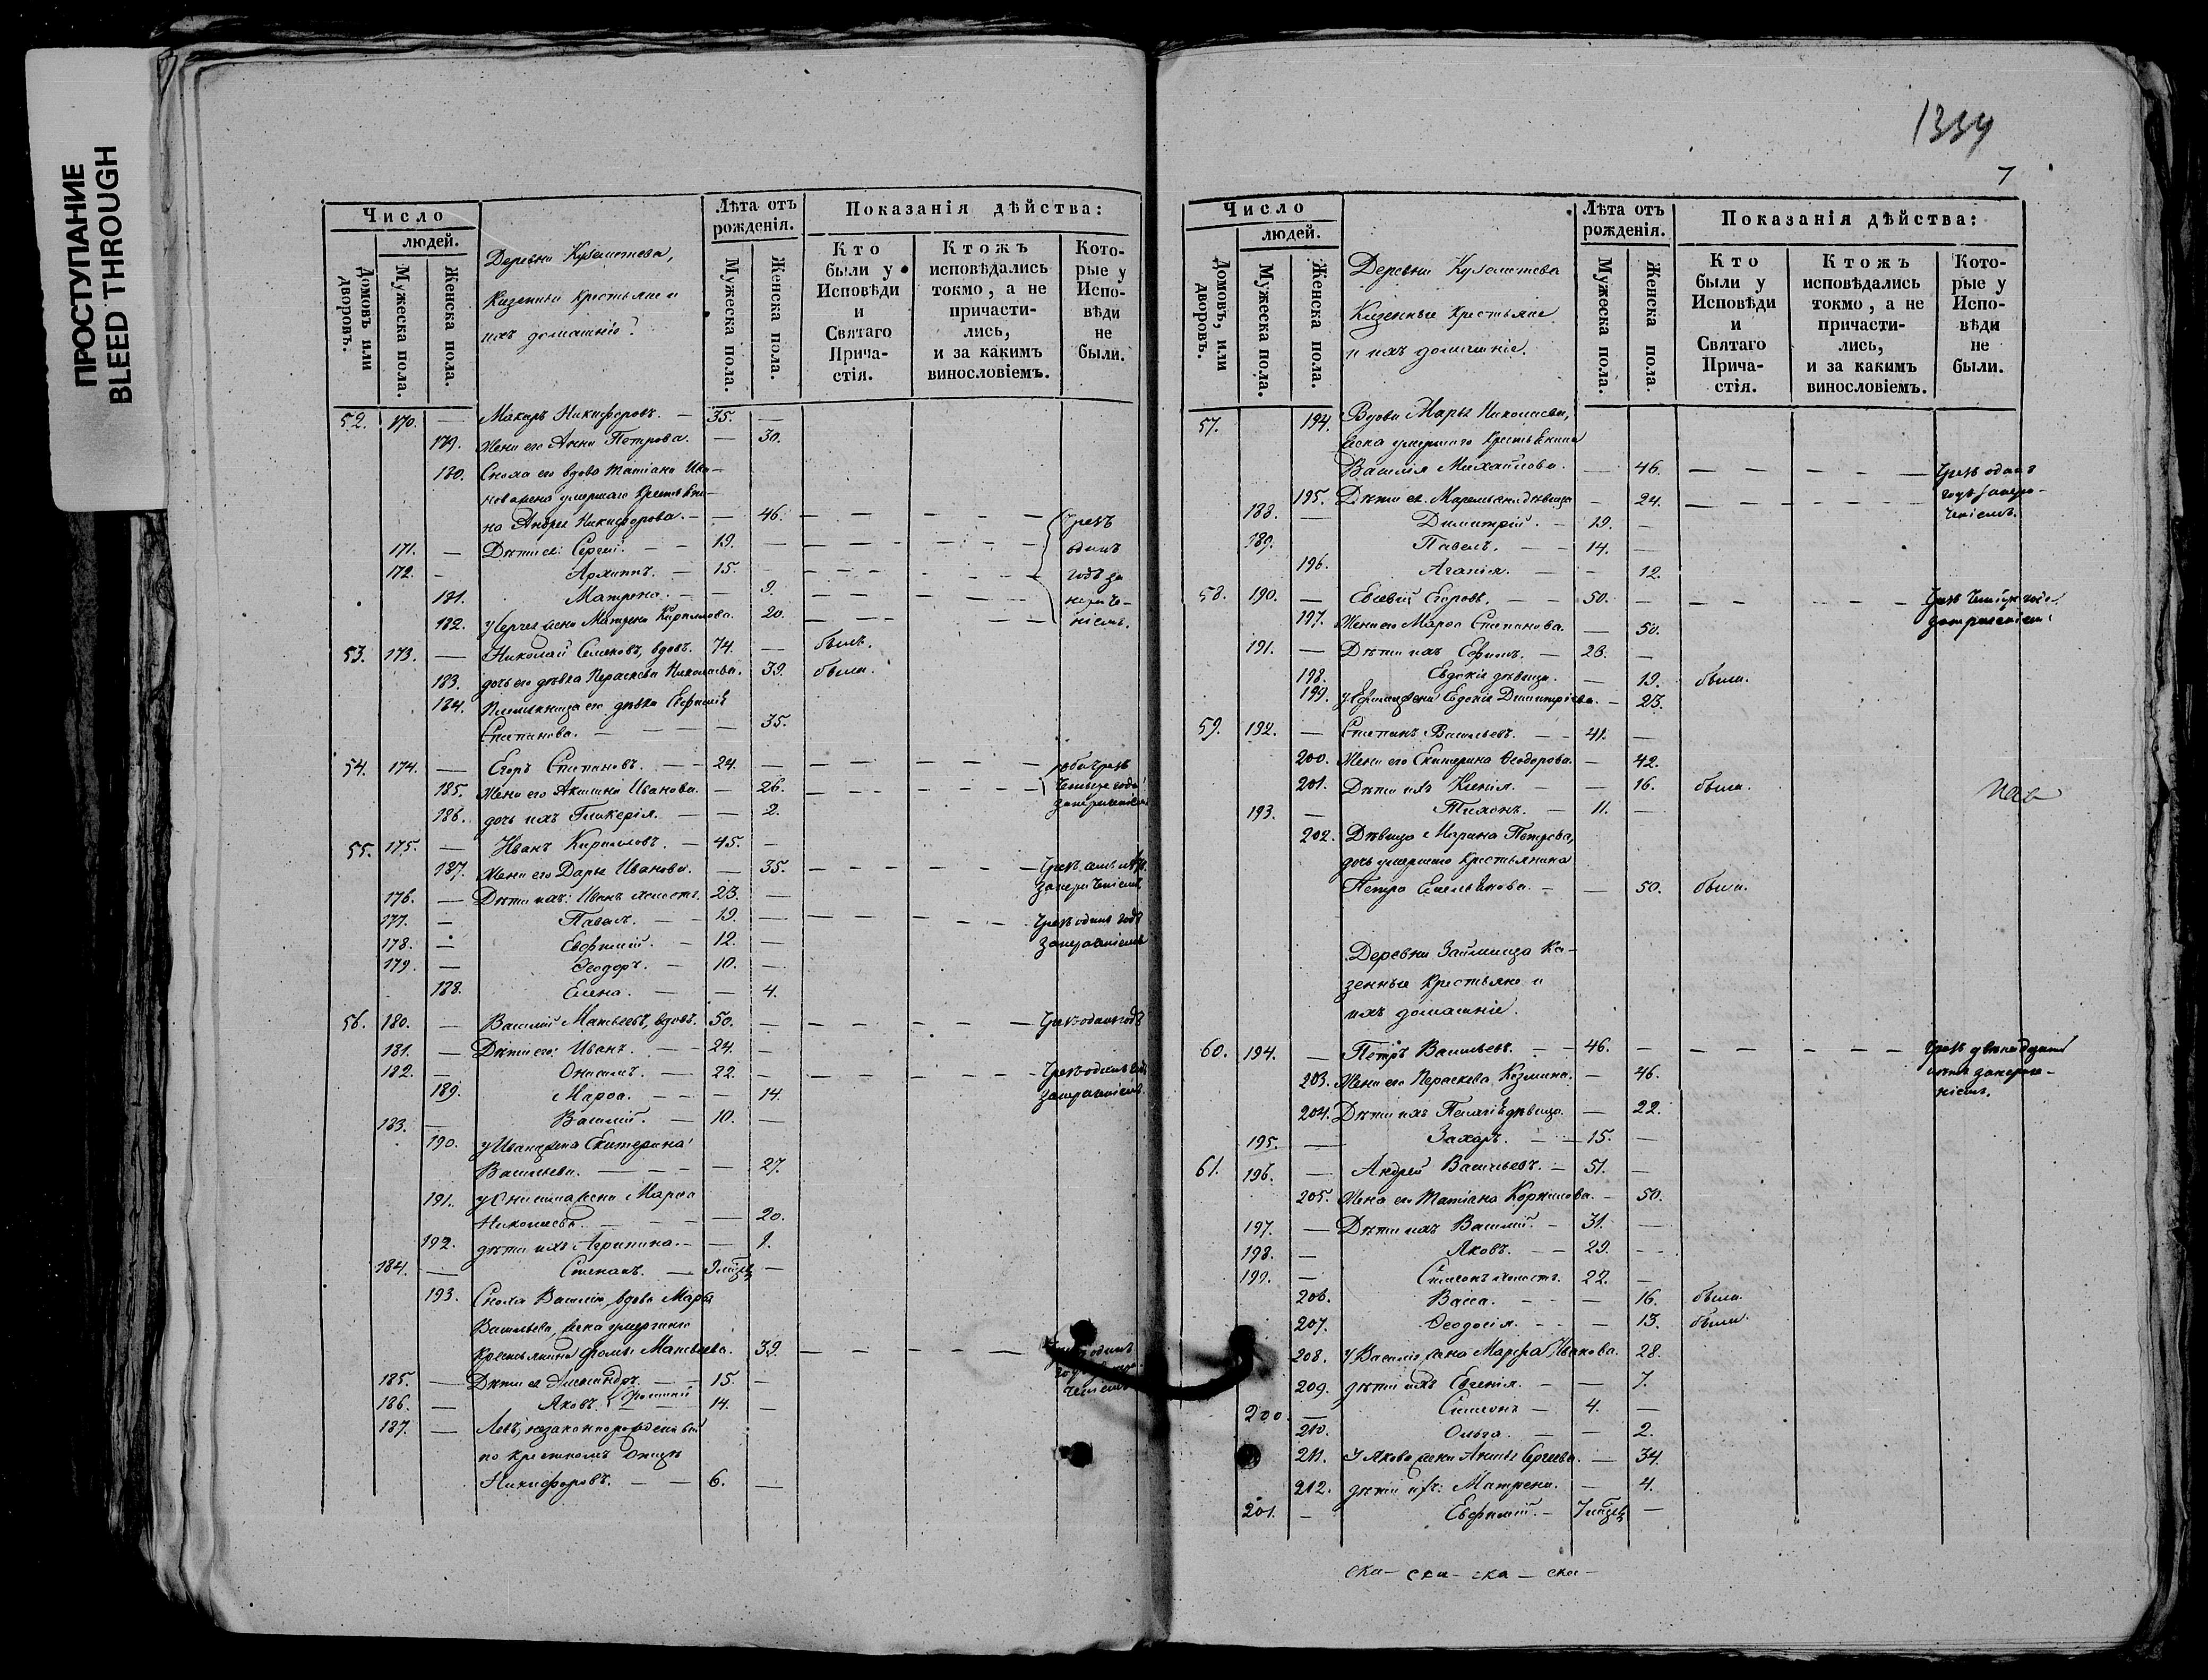 ПРОСТУПАНИЕ
BLEED THROUGH
Число
людей.
Домовъ или дворовъ.
Мужеска пола.
Женска пола.
Деревни
Казенныи крестьяне и
ихъ домашніе.
Лѣта отъ рожденія.
Мужеска пола.
Женска пола.
Показанія дѣйства:
Кто были у Исповѣди и Святаго Прича-стія.
Ктожъ исповѣдались токмо, а не причасти-лись, и за какимъ винословіемъ.
Кото-рые у Испо-вѣди не были.
52. 170. — Макаръ Никифоровъ. — 35. —
179. Жена его Анна Петрова. — 30.
180. Сноха его вдова Татіана Ива-
нова жена умершаго крестьяни-
на Андрея Никифорова. — — 46. Чрезъ
171. — Дѣти ея: Сергей. — — 19. — одинъ
172. — Архиппъ. — 15. — годъ за
181. Матрена. — — 9. нерече-
182. у Сергея жена Матрена Кирилова. 20. ніемъ.
53. 173. — Николай Семеновъ, вдовъ. 74. — былъ.
183. дочь его дѣвка Параскева Николаева. 39. была.
184. Племянница его дѣвка Евфимія
Степанова. — — — — 35.
54. 174. — Егоръ Степановъ. — — 24. — оба чрезъ
185. Жена его Акилина Иванова. — 26. четыре года
186. дочь ихъ Гликерія. — — 2.
55. 175. — Иванъ Кириловъ. — 45. —
187. Жена его Дарья Иванова. — 35.
176. — Дѣти ихъ: Иванъ холостъ. 23. —
177. — Павелъ. — — 19. — Чрезъ одинъ годъ
178. — Евфимій. — 12. —
179. — Ѳеодоръ. — 10. —
188. Елена. — — 4.
56. 180. — Василій Матвѣевъ, вдовъ. 50. — Чрезъ одинъ годъ
181. — Дѣти его: Иванъ. — — 24. —
182. — Онисимъ. — 22. — Чрезъ одинъ годъ
189. Марѳа. — — — 14.
183. — Василій. — 10. —
190. у Ивана жена Екатерина
Васильева. — — — — 27.
191. у Онисима жена Марѳа
Николаева. — — — — 20.
192. дѣти ихъ Агрипина. — — 1.
184. — Степанъ. —
193. Сноха Василію, вдова Марья
Васильева, жена умершаго
крестьянина Ѳомы Матвѣева. 39. Чрезъ одинъ
185. — Дѣти ея Александръ. — — 15. —
186. — Яковъ. Ѳомины 14. —
187. — Левъ, незаконнорожденный
по крестномъ отцѣ
Никифоровъ. — — 6. —
1334
7
Число
людей.
Домовъ, или дворовъ.
Мужеска пола.
Женска пола.
Деревни
Казенные крестьяне
и ихъ домашніе.
Лѣта отъ рожденія.
Мужеска пола.
Женска пола.
Показанія дѣйства:
Кто были у Исповѣди и Святаго Прича-стія.
Ктожъ исповѣдались токмо, а не причасти-лись, и за какимъ винословіемъ.
Кото-рые у Испо-вѣди не были.
57. 194. Вдова Марья Николаева,
жена умершаго крестьянина
Василія Михайлова. — 46. Чрезъ одинъ
195. Дѣти ея: дѣвица — 24. годъ
188. — Димитрій. — 19. —
189. Павелъ. — — 14. —
196. Агапія. — — 12.
58. 190. — Егоровъ. — — 50. —
197. Жена его Марѳа Степанова. — 50.
191. — Дѣти ихъ Ефимъ. — 26. —
198. Евдокія дѣвица. — 19. была.
199. у Ефима жена Евдокія Димитріева. — 23.
59. 192. — Степанъ Васильевъ. — — 41. —
200. Жена его Екатерина Ѳеодорова. — 42.
201. Дѣти ихъ Ксенія. — — 16. была.
193. — Тихонъ. — 11. —
202. Дѣвица Марина Петрова,
дочь умершаго крестьянина
Петра Емельянова. — — 50. была.
Деревни Займища ка-
зенные крестьяне и
ихъ домашніе.
60. 194. — Петръ Васильевъ. — — 46. —
203. Жена его Параскева Козмина. — 46.
204. Дѣти ихъ Пелагія дѣвица. — 22.
195. — Захаръ. — — 15. —
61. 196. — Андрей Васильевъ. — 51. —
205. Жена его Татіана Корнилова. — 50.
197. — Дѣти ихъ Василій. — 31. —
198. — Яковъ. — — 29. —
199. — Симеонъ холостъ. 22. —
206. Васса. — — — 16. была.
207. Ѳеодосія. — — — 13. была.
208. У Василія жена Марѳа Иванова. 28.
209. дѣти ихъ Евгенія. — — 7.
200. — Симеонъ — 4. —
210. Ольга. — — 2.
211. У Якова жена Анна Сергеева. — 34.
212. дѣти ихъ: Матрена. — 4.
201. — Евфимій. — —
ска — ска — ска — ска —